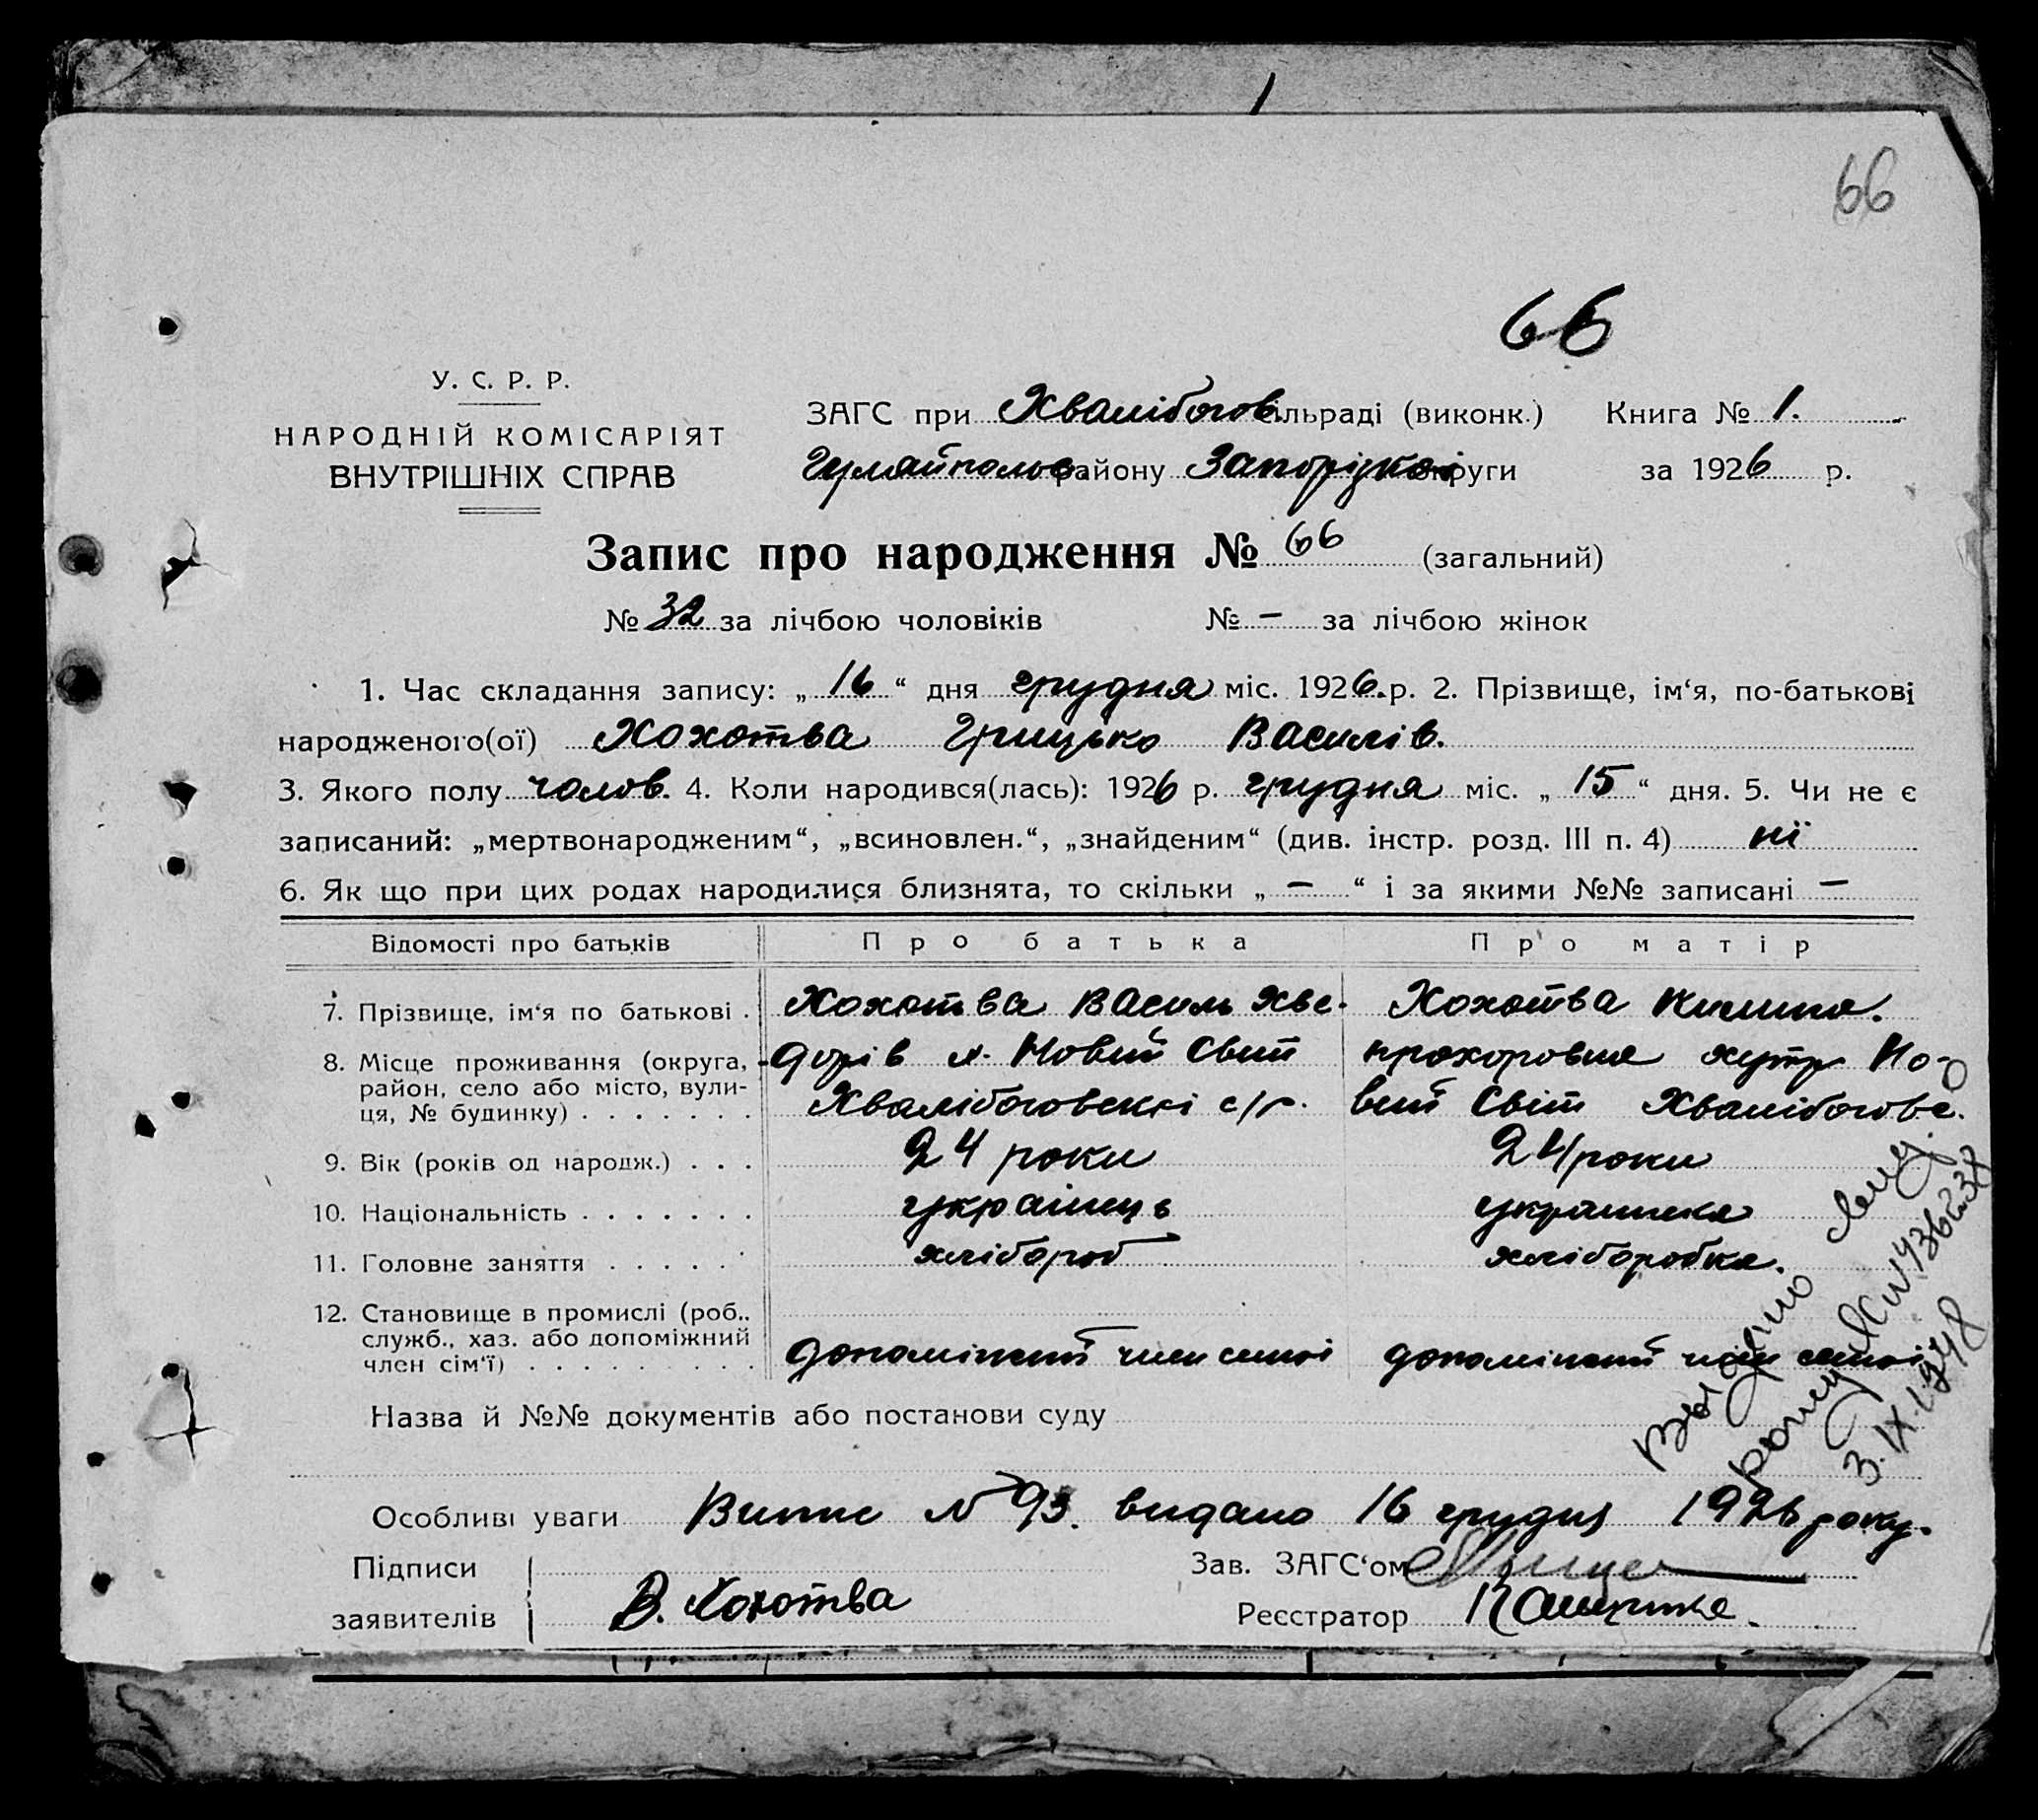 66
66
У. С. Р. Р.
НАРОДНІЙ КОМІСАРІЯТ
ВНУТРІШНІХ СПРАВ
ЗАГС при Хвалібогов сільраді (виконк.) Книга № 1.
Гуляйпольс. району Запорізкої округи за 1926 р.
Запис про народження № 66 (загальний)
№ 32 за лічбою чоловіків № — за лічбою жінок
1. Час складання запису: „ 16 “ дня грудня міс. 1926. р. 2. Прізвище, ім‘я, по-батькові
народженого(ої) Хохотва Грицько Василів.
3. Якого полу чолов. 4. Коли народився(лась): 1926 р. грудня міс. „ 15 “ дня. 5. Чи не є
записаний: „мертвонародженим“, „всиновлен.“, „знайденим“ (див. інстр. розд. III п. 4) ні
6. Як що при цих родах народилися близнята, то скільки „ — “ і за якими №№ записані —
Відомості про батьків Про батька Про матір
7. Прізвище, ім‘я по батькові . Хохотва Василь Хве- Хохотва Килина.
8. Місце проживання (округа, -дорів х. Новий Світ прохоровна хутр Но-
район, село або місто, вули- Хвалібоговскої с/р. вий Світ Хвалібогове.
ця, № будинку) . . . . . . .
9. Вік (років од народж.) . . . 24 роки 24 роки
10. Національність . . . . . . . українець українка
11. Головне заняття . . . . . хлібороб хліборобка.
12. Становище в промислі (роб.,
служб., хаз. або допоміжний
член сім‘ї) . . . . . . . . . допоміжний член сімї допоміжний член сімї
Назва й №№ документів або постанови суду
Выдано
3.IX.1948
Особливі уваги Випис № 93. видано 16 грудня 1926 року.
Підписи Зав. ЗАГС‘ом
заявителів В. Хохотва Реєстратор